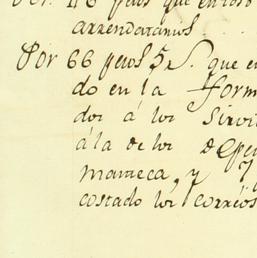 Por 46 pesos que en
arrendatarios
Por 66 pesos 5 r.s que en
do en la form
dos á los Sirvi
á la de los depen
mameca, y
costado los correos